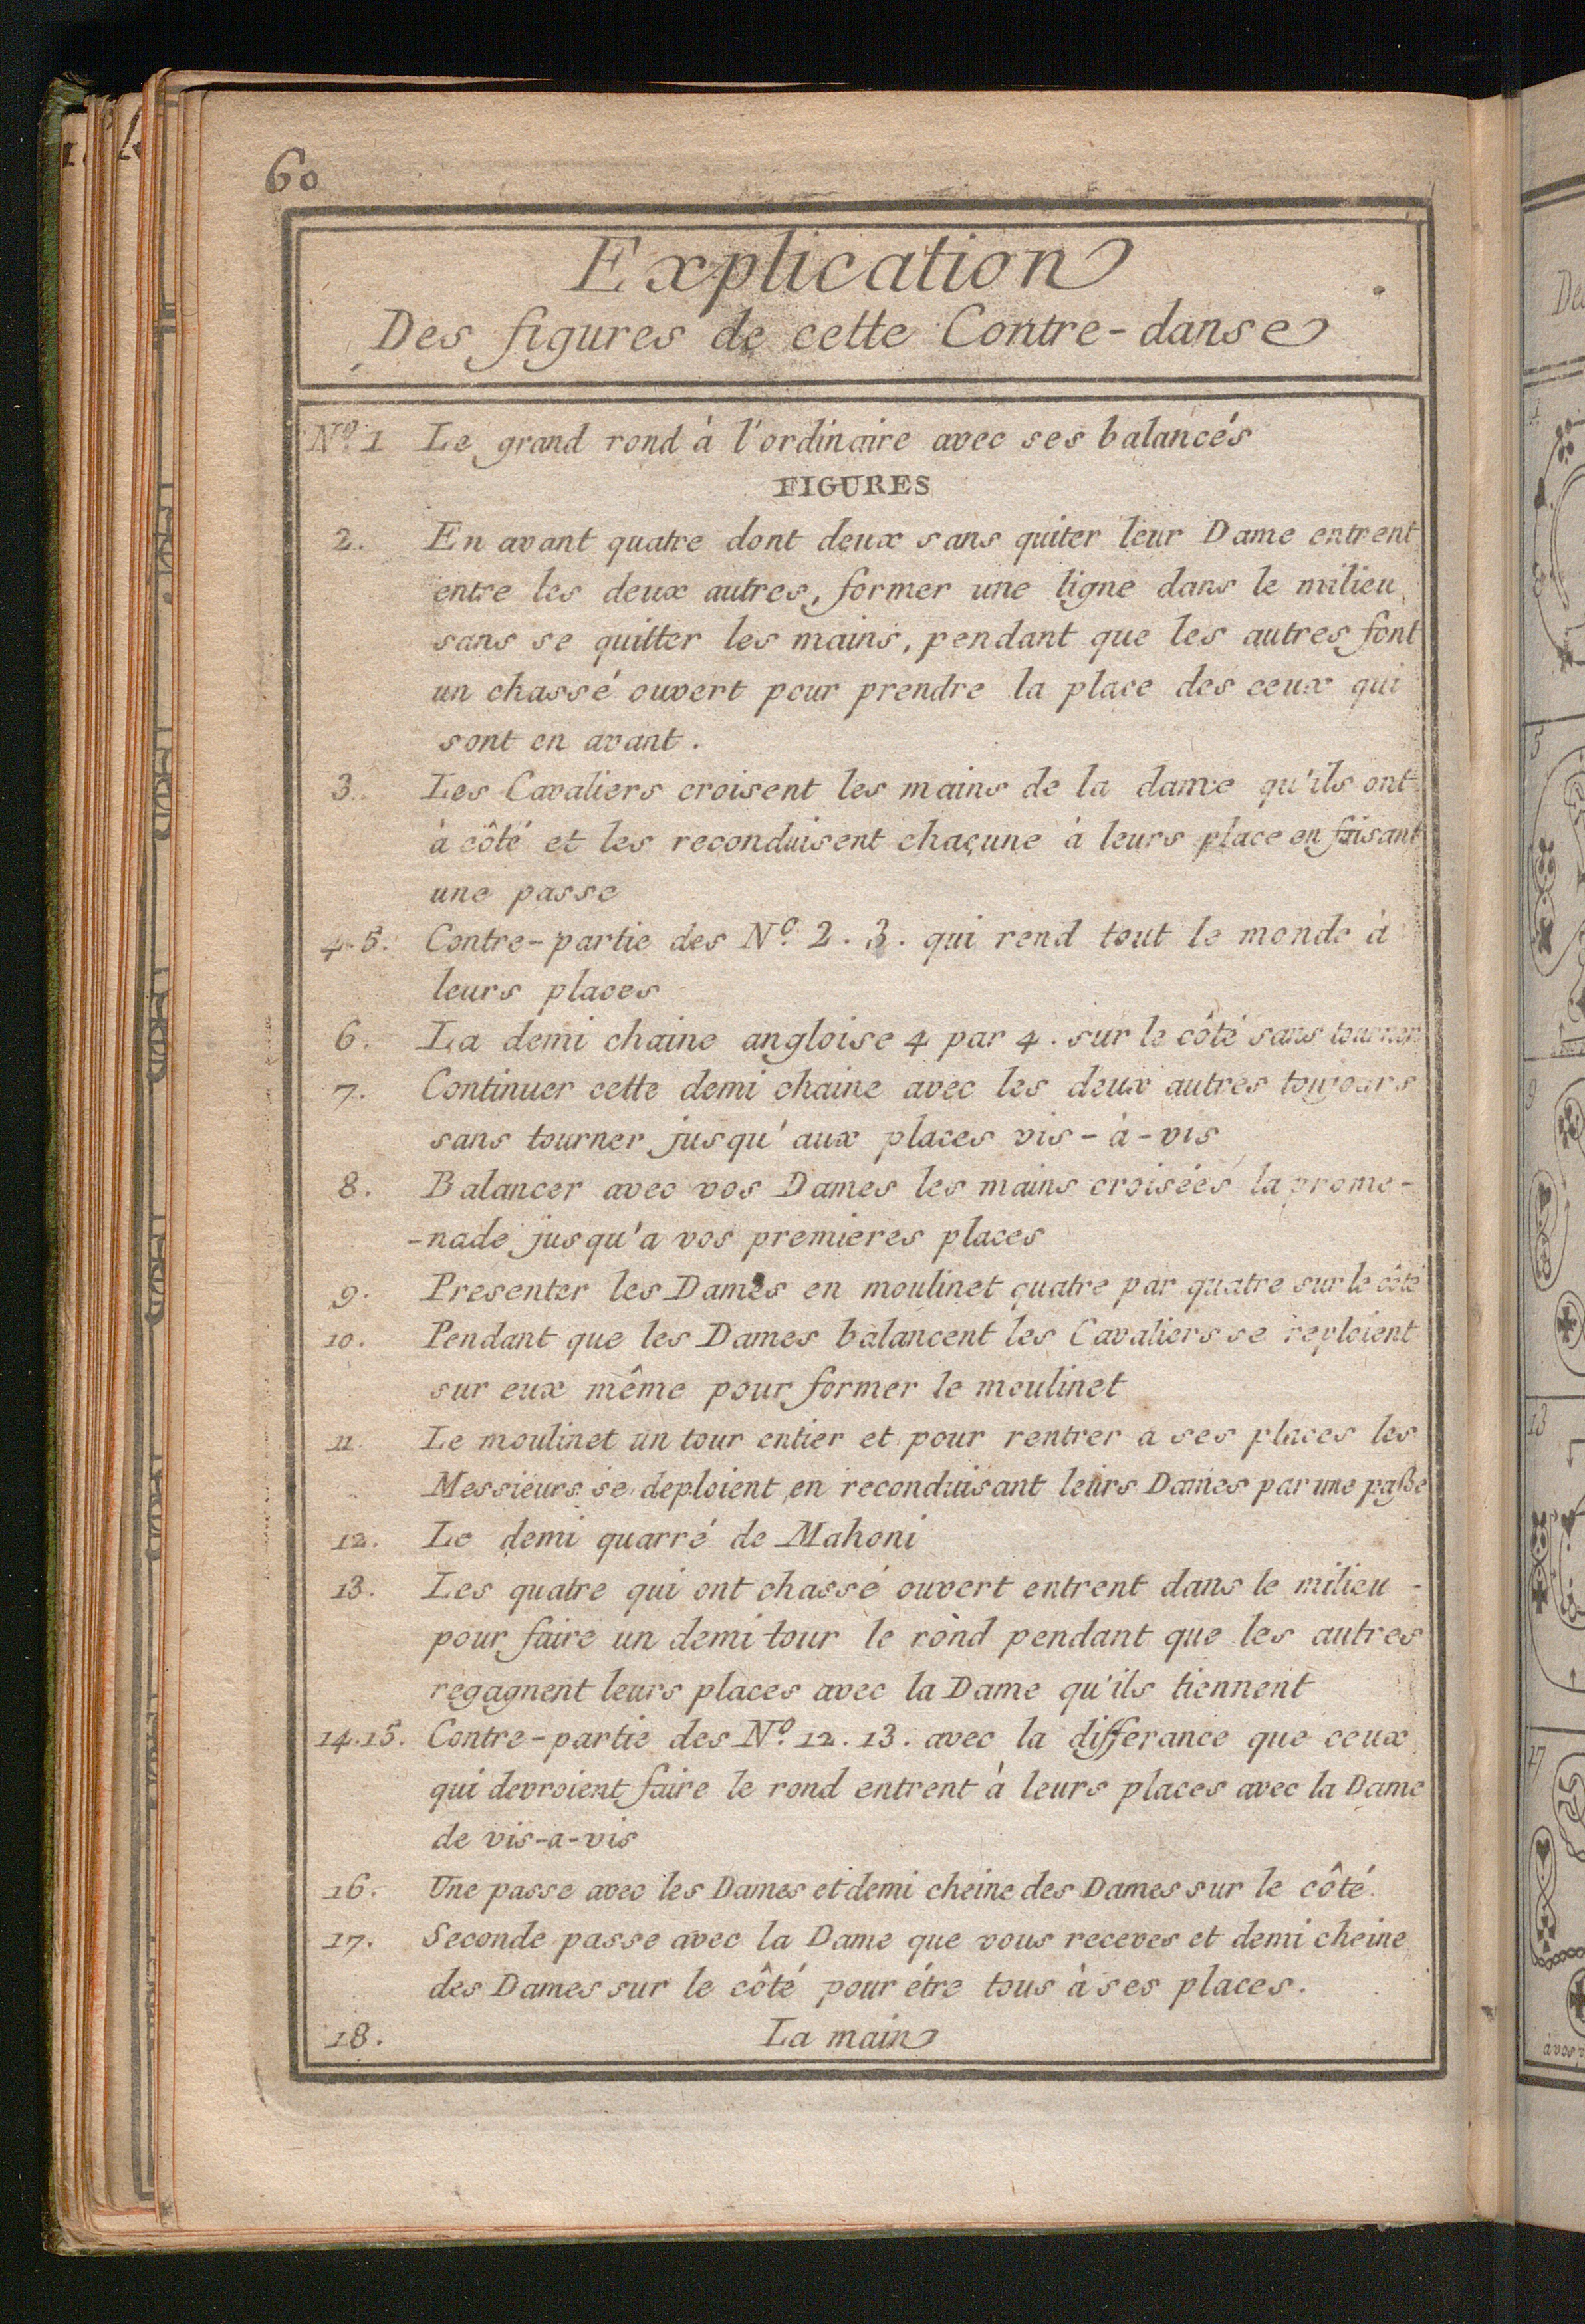 60
Explication
Des figures de cette Contre-danse
Nº 1 Le grand rond à l'ordinaire avec ses balancés
FIGURES
2. En avant quatre dont deux sans quiter leur Dame entrent
entre les deux autres, former une ligne dans le milieu
sans se quitter les mains, pendant que les autres font
un chassé ouvert pour prendre la place des ceux qui
sont en avant.
3. Les Cavaliers croisent les mains de la dame qu'ils ont
à côté et les reconduisent chaçune à leurs place en faisant
une passe
4.5. Contre-partie des Nº 2. 3. qui rend tout le monde à
leurs places
6. La demi chaine angloise 4 par 4. sur le côté sans tourner
7. Continuer cette demi chaine avec les deux autres toujours
sans tourner jusqu'aux places vis-à-vis
8. Balancer avec vos Dames les mains croisées la prome-
-nade jusqu'a vos premieres places
9. Presenter les Dames en moulinet quatre par quatre sur le côté
10. Pendant que les Dames balancent les Cavaliers se reploient
sur eux même pour former le moulinet
11. Le moulinet un tour entier et pour rentrer a ses places les
Messieurs se deploient en reconduisant leurs Dames par une paße
12. Le demi quarré de Mahoni
13. Les quatre qui ont chassé ouvert entrent dans le milieu -
pour faire un demi tour le rond pendant que les autres
regagnent leurs places avec la Dame qu'ils tiennent
14.15. Contre-partie des Nº 12. 13. avec la differance que ceux
qui devroient faire le rond entrent à leurs places avec la Dame
de vis-a-vis
16. Une passe avec les Dames et demi cheine des Dames sur le côté.
17. Seconde passe avec la Dame que vous receves et demi cheine
des Dames sur le côté pour étre tous à ses places.
18. La main